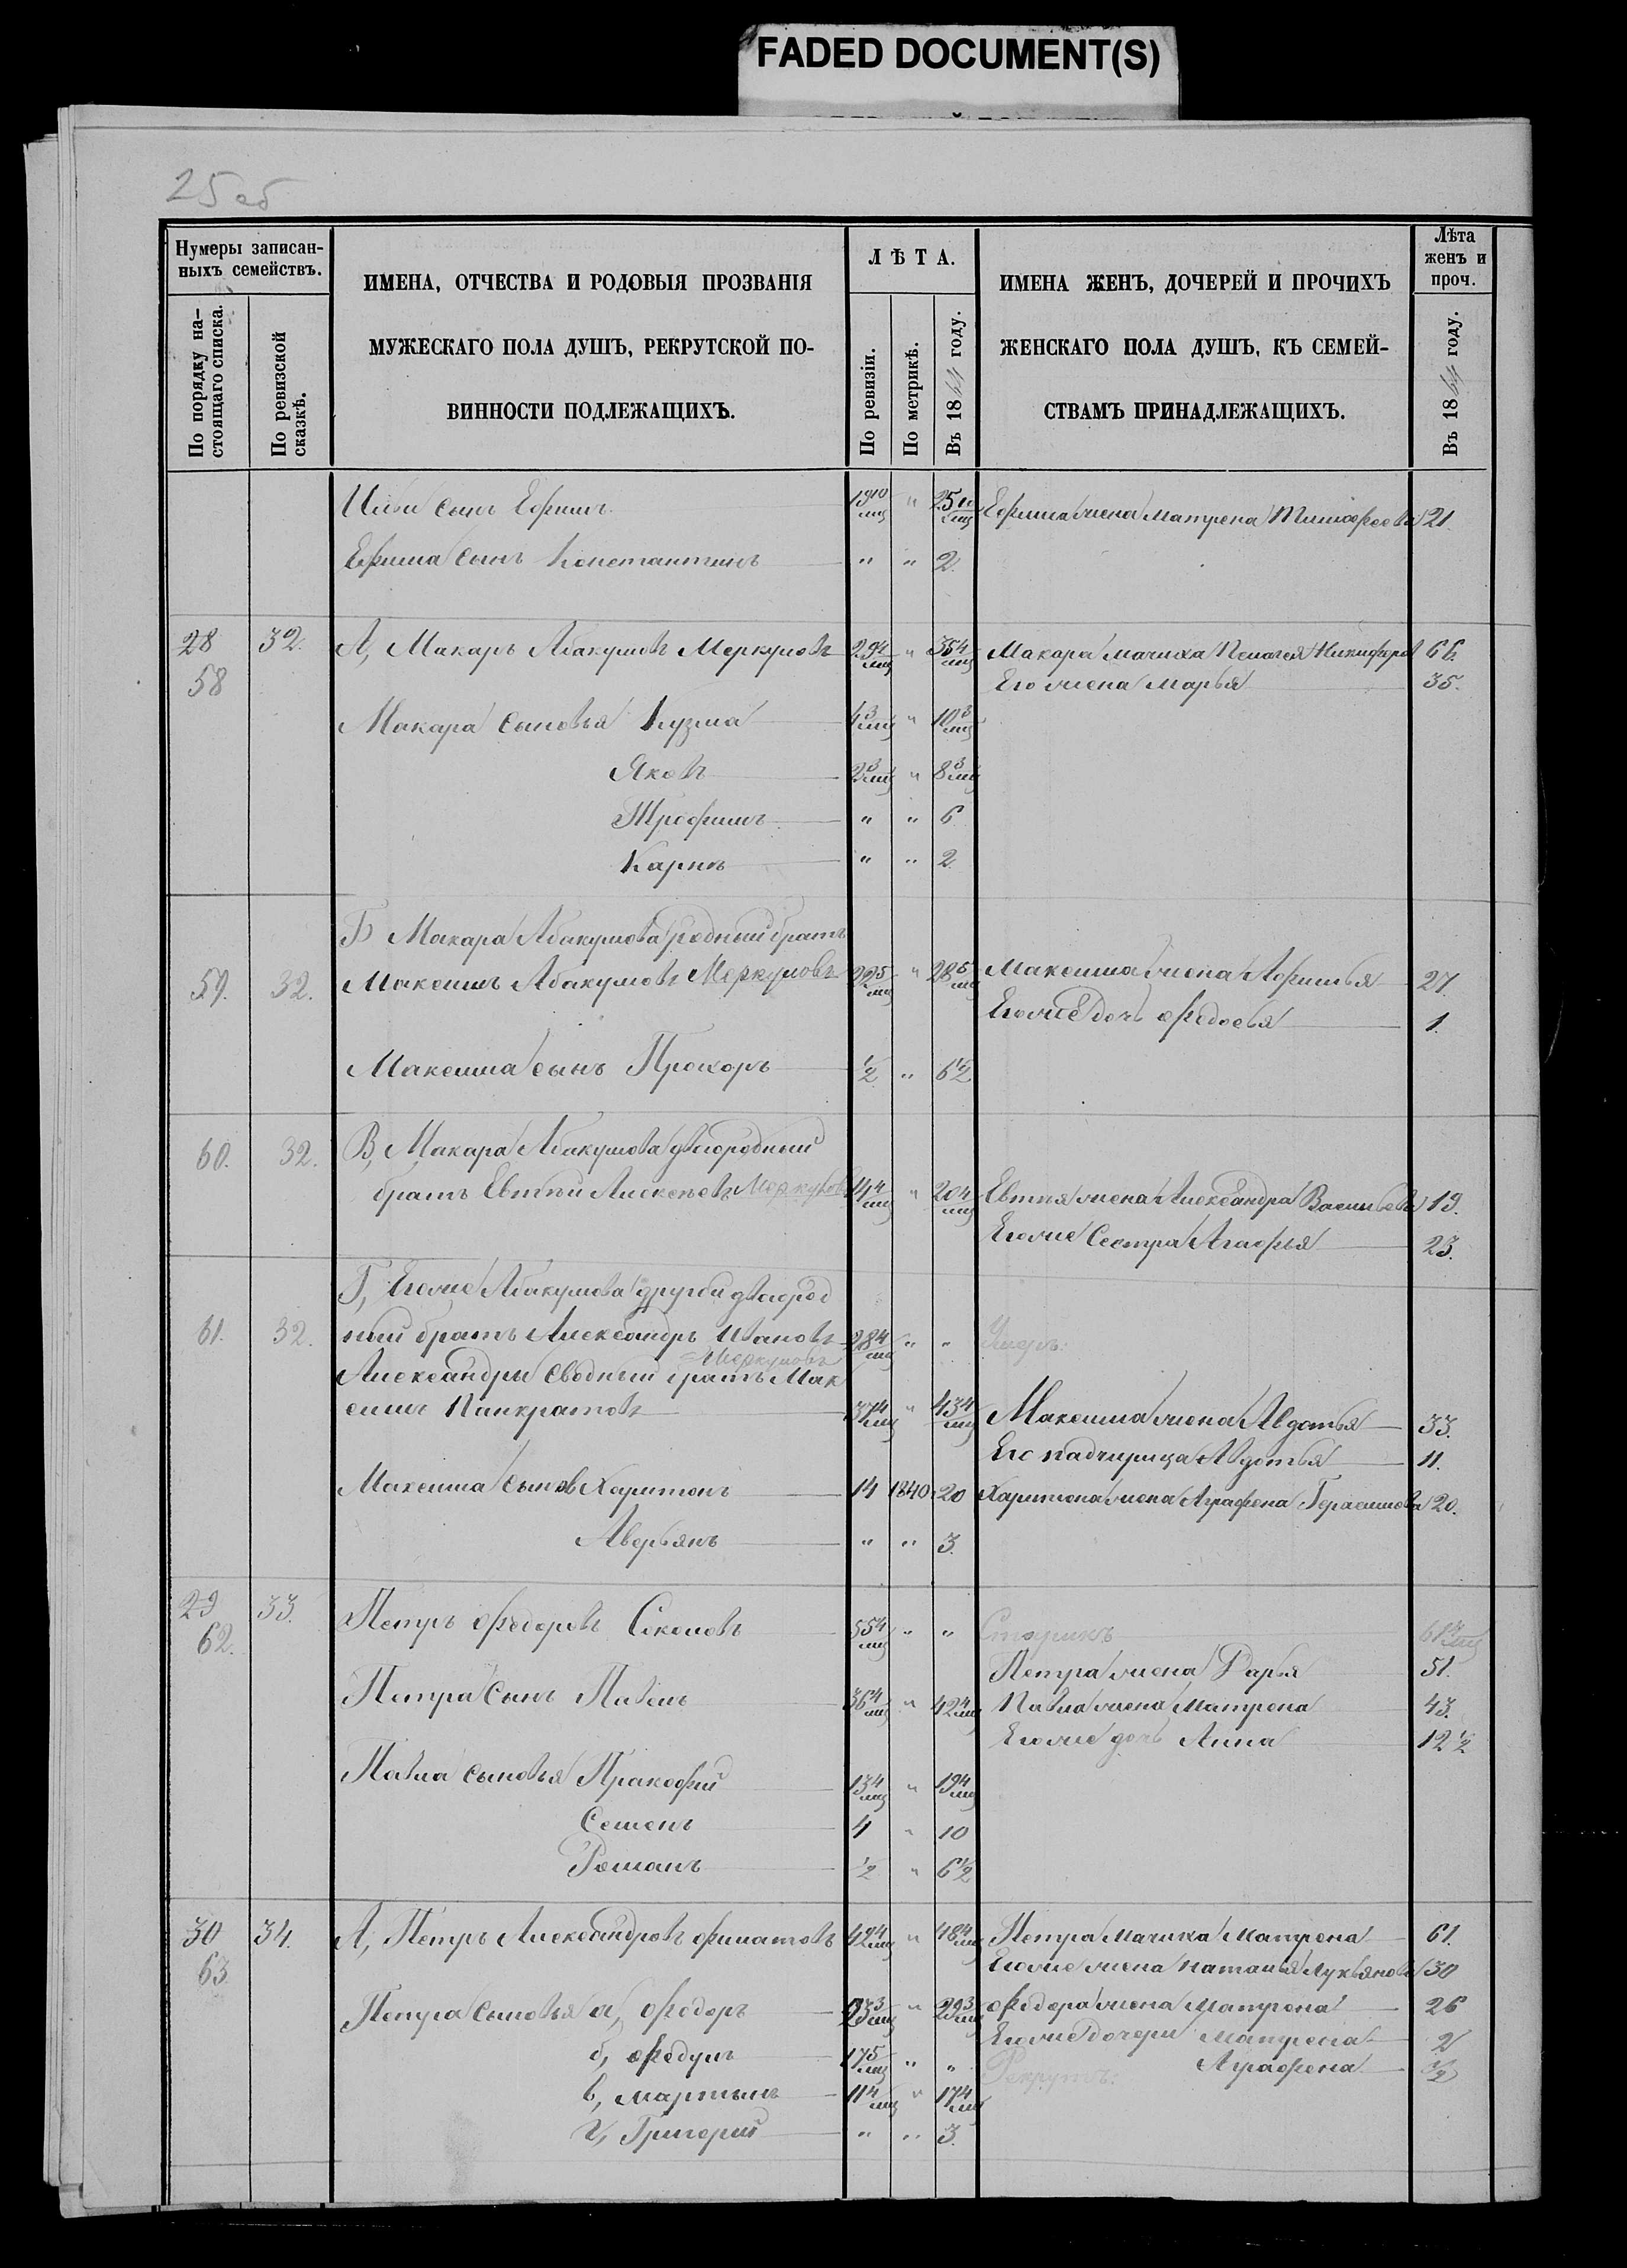 FADED DOCUMENT(S)
25 об
Нумеры записан-
ныхъ семействъ.
По порядку на-
стоящаго списка.
По ревизской
сказкѣ.
ИМЕНА, ОТЧЕСТВА И РОДОВЫЯ ПРОЗВАНІЯ
МУЖЕСКАГО ПОЛА ДУШЪ, РЕКРУТСКОЙ ПО-
ВИННОСТИ ПОДЛЕЖАЩИХЪ.
ЛѢТА.
По ревизіи.
По метрикѣ.
Въ 1864 году.
ИМЕНА ЖЕНЪ, ДОЧЕРЕЙ И ПРОЧИХЪ
ЖЕНСКАГО ПОЛА ДУШЪ, КЪ СЕМЕЙ-
СТВАМЪ ПРИНАДЛЕЖАЩИХЪ.
Лѣта
женъ и
проч.
Въ 1864 году.
сынъ Ефимъ 19 10/мц " 25 10/мц Ефима жена Матрена Тимофеева 21.
Ефима сынъ Константинъ " " 2.
28 32. А, Макаръ Абакумовъ Меркуловъ 29 4/мц " 35 4/мц Макара мачиха Пелагея Никифоров 66.
58 Его жена Марья 35.
Макара сыновья Кузма 4 3/мц " 10 3/мц
Яковъ 2 3/мц " 8 3/мц
Трофимъ " " 6
Карпъ " " 2
Б Макара Абакумова родный братъ
59. 32. Максимъ Абакумовъ Меркуловъ 22 5/мц " 28 5/мц Максима жена Афимья 27.
Егоже дочь Федосья 1.
Максима сынъ Прохоръ 1/2 " 6 1/2
60. 32. В, Макара Абакумова двоюродный
братъ Евтей Алексеевъ Меркулов 14 4/мц " 20 4/мц Евтея жена Александра Васильева 19.
Егоже сестра Агафья 23.
Г, Егоже Абакумова другой двоюрод
61. 32. ный братъ Александръ Ивановъ 28 4/мц " " Умеръ.
Меркуловъ
Александры сводный братъ Мак
симъ Панкратовъ 37 4/мц " 43 4/мц Максима жена Авдотья 33.
Его падчирица Авдотья 11.
Максима сынов Харитонъ 14 1840. 20 Харитона жена Аграфена Герасимова 20.
Аверьянъ " " 3.
29 33. Петръ Федоровъ Соколовъ 55 4/мц " " Старикъ 61 4/мц
62. Петра жена Дарья 51.
Петра сынъ Павелъ 36 4/мц " 42 4/мц Павла жена Матрена 43.
Егоже дочь Анна 12 1/2
Павла сыновья Пракофий 13 4/мц " 19 4/мц
Семенъ 4 " 10
Романъ 1/2 " 6 1/2
30 34. А, Петръ Александровъ Филатовъ 42 4/мц " 48 4/мц Петра мачиха Матрена 61.
63 Егоже жена Наталья Лукьянова 30
Петра сыновья а, Федоръ 23 3/мц " 29 3/мц Федора жена Матрена 26
Егоже дочери Матрена 2
б, Федулъ 17 5/мц " " Рекрутъ. Аграфена 1/2
в, Мартынъ 11 4/мц " 17 4/мц
г, Григорий " " 3.